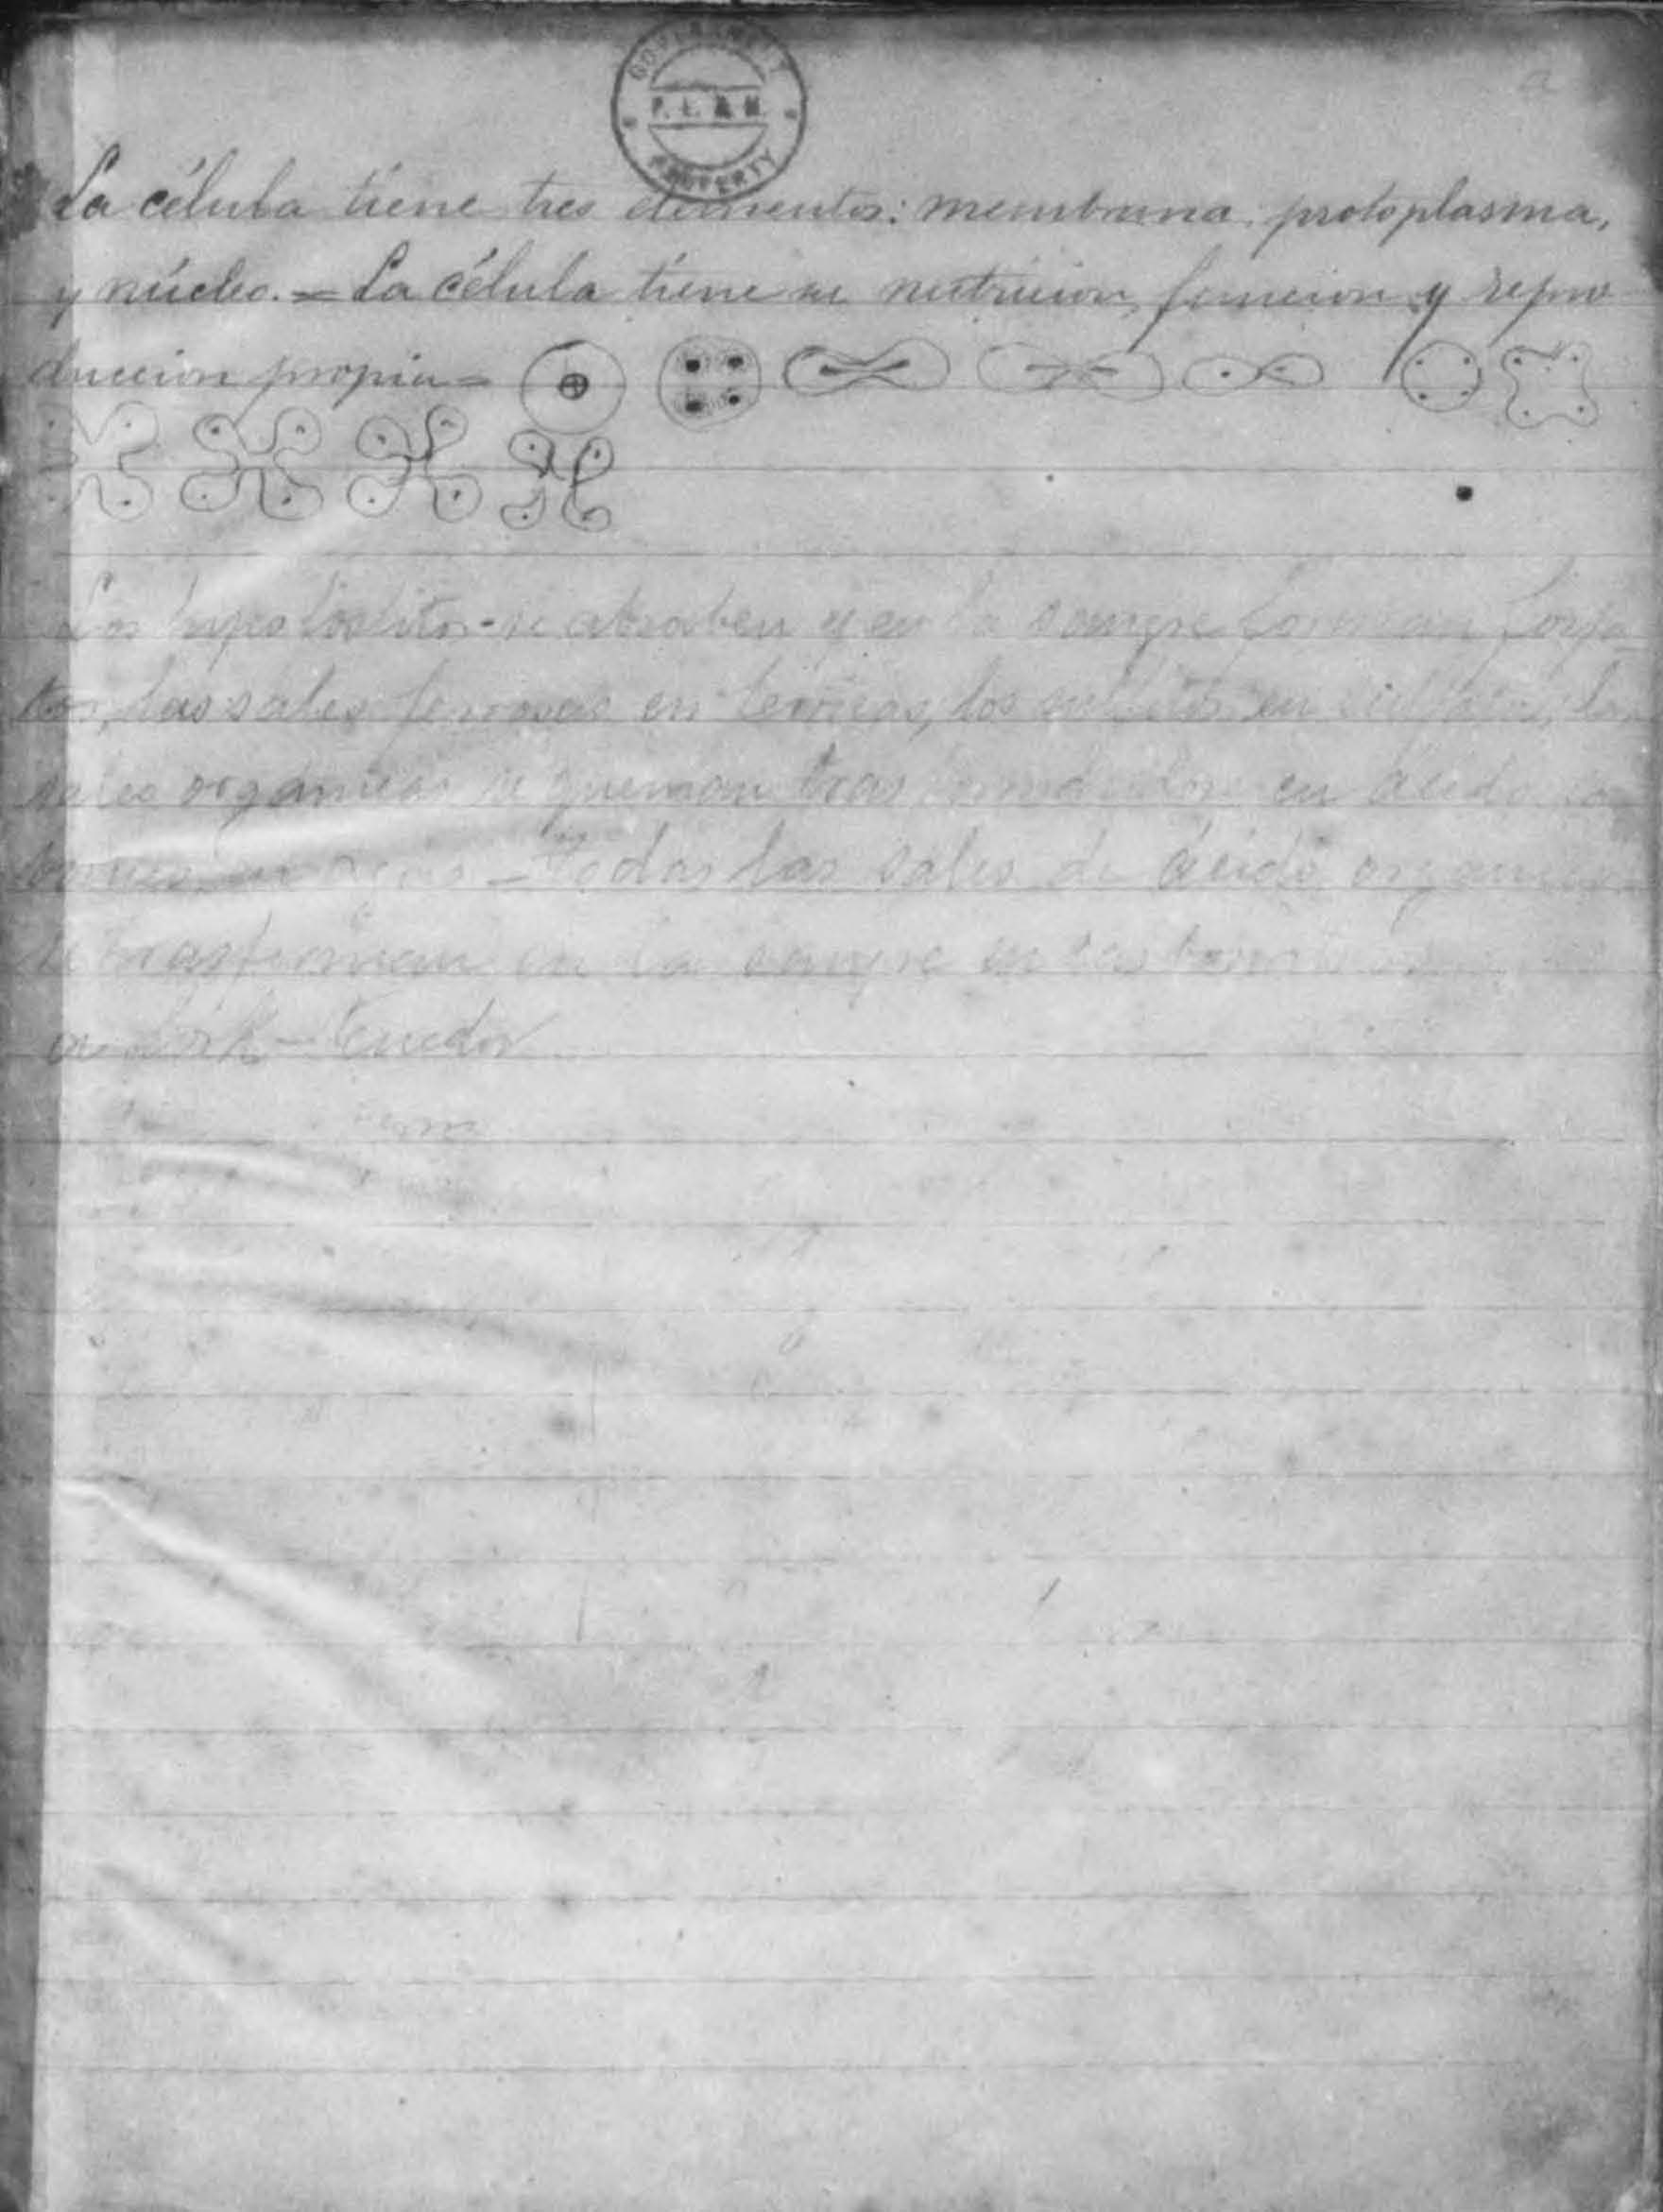 GOVERNMENT
P. L. & M.
PROPERTY
La célula tiene tres elementos: membrana, protoplasma,
y núcleo. = La célula tiene su nutricion, funcion y repro
duccion propia =
Los hypofosfitos se absorben y en la sangre forman fosfa
tos, las sales ferrosas en ferricas, los sulfitos en sulfatos, las
sales organicas se queman trasformandose en ácido car
en agua - Todas las sales de ácido organico
se trasforman en la sangre en carbonatos
- Tenedor